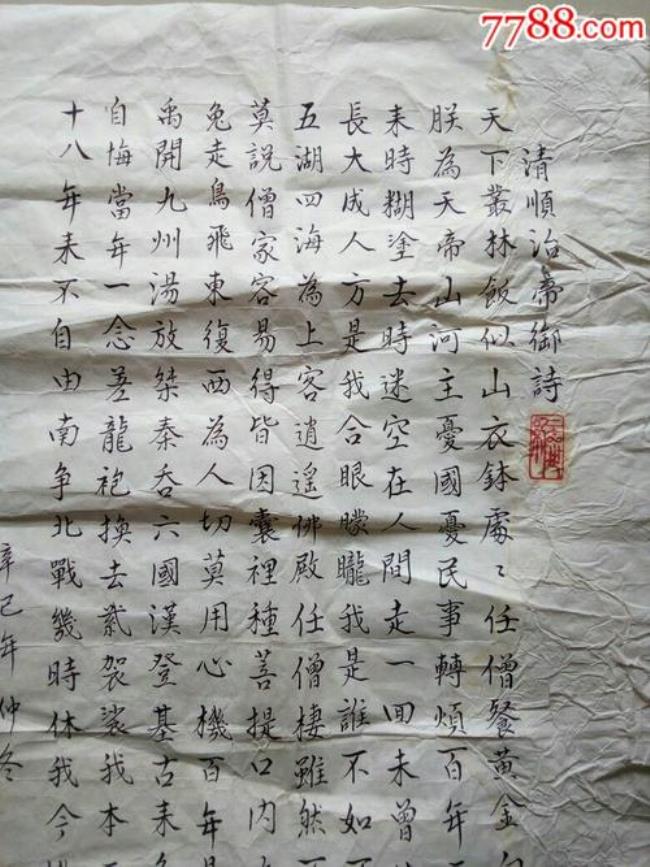 7788.com
清順治帝御詩
天下叢林飯似山衣鉢處〻任僧餐黃金
朕為天帝山河主憂國憂民事轉煩百年
来時糊塗去時迷空在人間走一回未曾
長大成人方是我合眼朦朧我是誰不如
五湖四海為上客逍遥佛殿任僧棲雖然
莫說僧家容易得皆因囊裡種菩提口内
兔走鳥飛東復西為人切莫用心機百年
禹開九州湯放桀秦吞六國漢登基古来
自悔當年一念差龍袍換去袈裟我本
十八年来不自由南争北戰幾時休我今
辛巳年仲冬